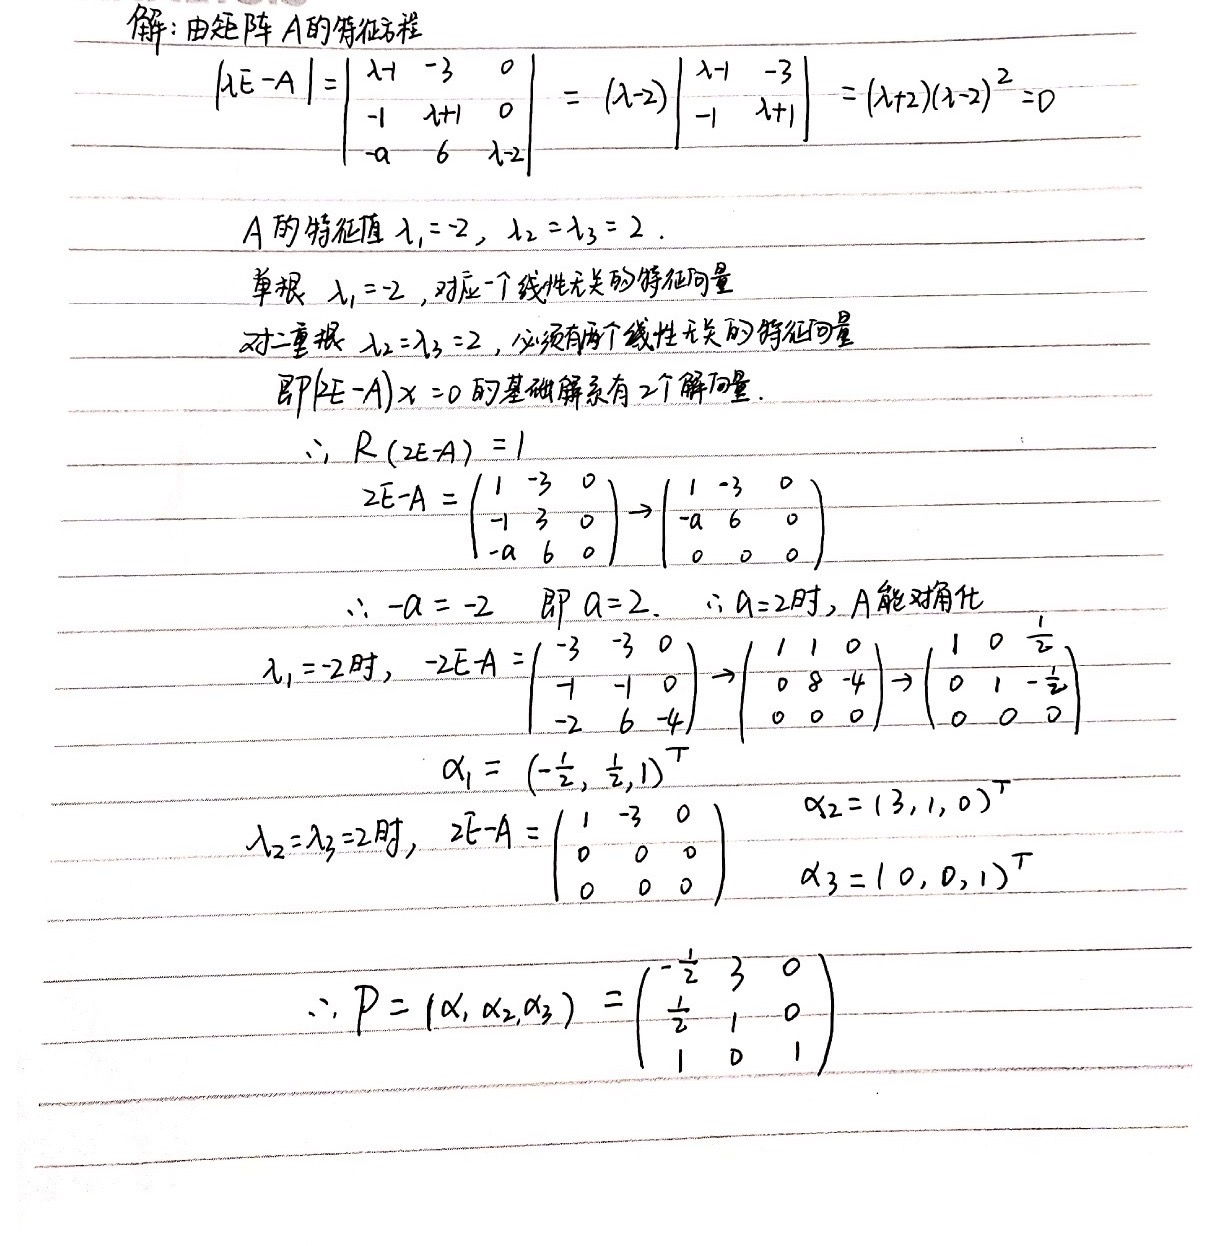 解：由矩阵 A的特征方程
|λE-A| = | λ-1 -3 0 ; -1 λ+1 0 ; -a 6 λ-2 | = (λ-2) | λ-1 -3 ; -1 λ+1 | = (λ+2)(λ-2)² = 0
A的特征值 λ₁=-2, λ₂=λ₃=2.
单根 λ₁=-2, 对应一个线性无关的特征向量
对二重根 λ₂=λ₃=2, 必须有两个线性无关的特征向量
即(2E-A)x=0的基础解系有2个解向量.
∴ R(2E-A) = 1
2E-A = ( 1 -3 0 ; -1 3 0 ; -a 6 0 ) → ( 1 -3 0 ; -a 6 0 ; 0 0 0 )
∴ -a = -2 即 a=2. ∴ a=2时, A能对角化
λ₁=-2时, -2E-A = ( -3 -3 0 ; -1 -1 0 ; -2 6 -4 ) → ( 1 1 0 ; 0 8 -4 ; 0 0 0 ) → ( 1 0 1/2 ; 0 1 -1/2 ; 0 0 0 )
α₁ = (-1/2, 1/2, 1)ᵀ
λ₂=λ₃=2时, 2E-A = ( 1 -3 0 ; 0 0 0 ; 0 0 0 ) α₂=(3,1,0)ᵀ
α₃=(0,0,1)ᵀ
∴ P = (α₁ α₂,α₃) = ( -1/2 3 0 ; 1/2 1 0 ; 1 0 1 )